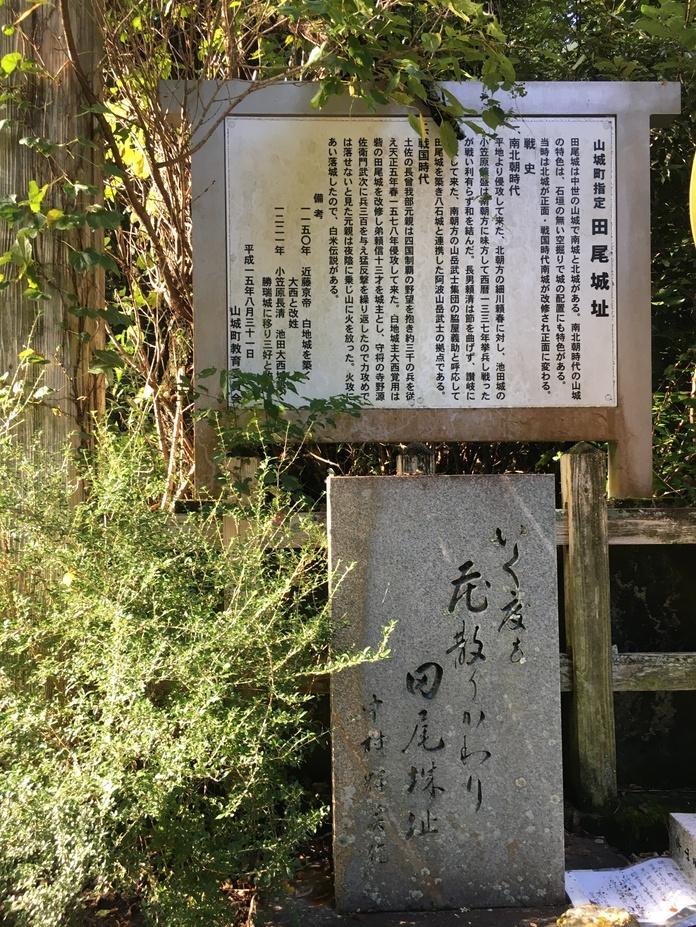 山城町指定 田尾城址
田尾城は中世の山城で南城と北城がある。南北朝時代の山城
の特色は、石垣の無い空掘りで城の配置にも特色がある。
当時は北城が正面、戦国時代南城が改修され正面に変わる。
戦史
南北朝時代
平地より侵攻して来た、北朝方の細川頼春に対し、池田城の
小笠原義盛は南朝方に味方して西暦一三三七年挙兵し戦った
が戦い利有らず和を結んだ。長男頼清は節を曲げず、讃岐に
して来た、南朝方の山岳武士集団の脇屋義助と呼応して
田尾城を築き八石城と連携した阿波山岳武士の拠点である。
戦国時代
土佐の長曾我部元親は四国制覇の野望を抱き約三千の兵を従
え天正五年春一五七八年侵攻して来た。白地城主大西覚用は
砦の田尾城を改修し弟頼信十三才を城主とし、守将の寺野源
佐衛門武次に兵三百を与え猛反撃を繰り返したので力攻めで
は落せないと見た元親は夜陰に乗じ山に火を放った。火攻に
あい落城したので、白米伝説がある。
備考
一一五〇年 近藤京帝 白地城を築
大西と改姓
一二二一年 小笠原長清 池田大西
勝瑞城に移り三好と
平成一五年八月三十一日
山城町教育 会
いく度も
花散りかわり
田尾城址
中村